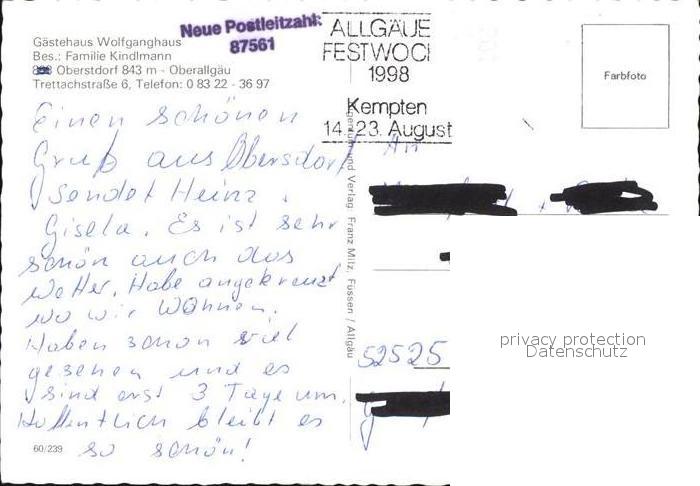 Gästehaus Wolfganghaus
Bes.: Familie Kindlmann
Oberstdorf 843 m - Oberallgäu
Trettachstraße 6, Telefon: 0 83 22 - 36 97
Neue Postleitzahl:
87561
ALLGÄUE
FESTWOCI
1998
Kempten
14.-23. August
Farbfoto
Einen schönen
Gruß aus Obersdorf
sendet Heinz.
Gisela. Es ist sehr
schön auch das
Wetter. Habe angekreuzt
wo wir Wohnen.
Haben schon viel
gesehen und es
sind erst 3 Tage um.
Hoffentlich bleibt es
so schön!
60/239
und Verlag: Franz Milz, Füssen / Allgäu
An
52525
privacy protection
Datenschutz